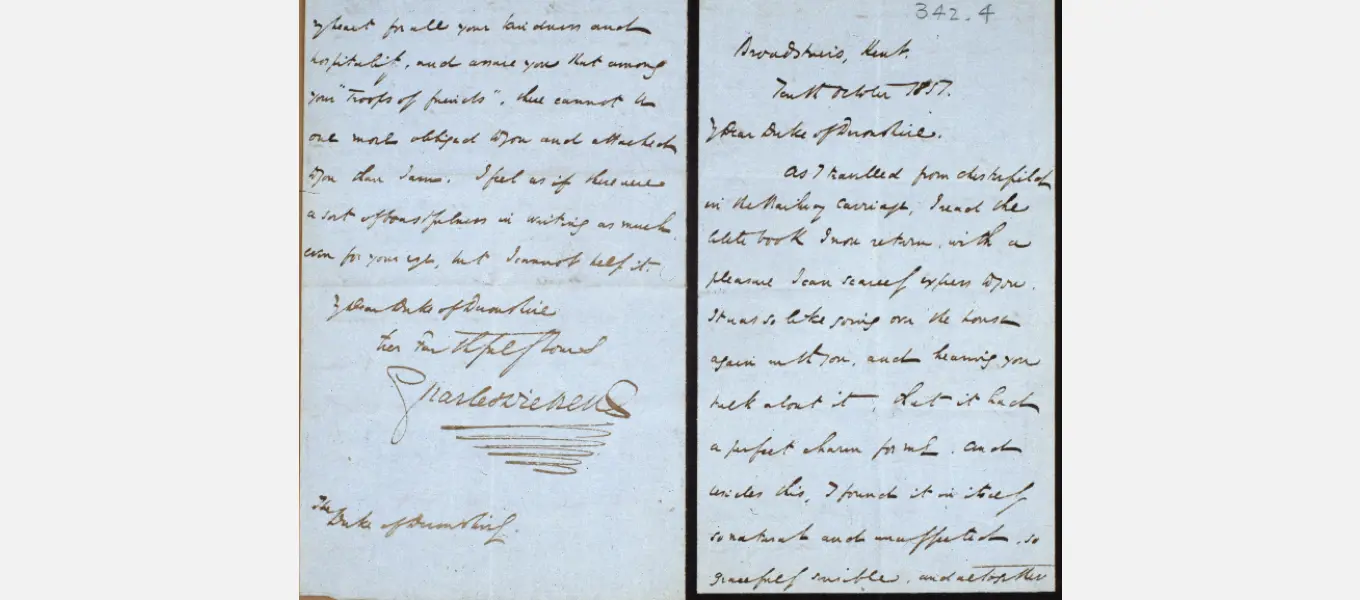 342.4
Broadstairs, Kent.
Tenth October 1851.
My Dear Duke of Devonshire.
As I travelled from Chesterfield
in the Railway Carriage, I read the
little book I now return, with a
pleasure I can scarcely express to you.
It was so like going over the house
again with you, and hearing you
talk about it, that it had
a perfect charm for me. And
besides this, I found it in itself
so natural and unaffected, so
gracefully sensible, and altogether
my heart for all your kindness and
hospitality, and assure you that among
your "troops of friends", there cannot be
one more obliged to you and attached
to you than I am. I feel as if there were
a sort of boastfulness in writing as much,
even for your eyes, but I cannot help it.
My Dear Duke of Devonshire
Ever Faithfully Yours
Charles Dickens
The
Duke of Devonshire.